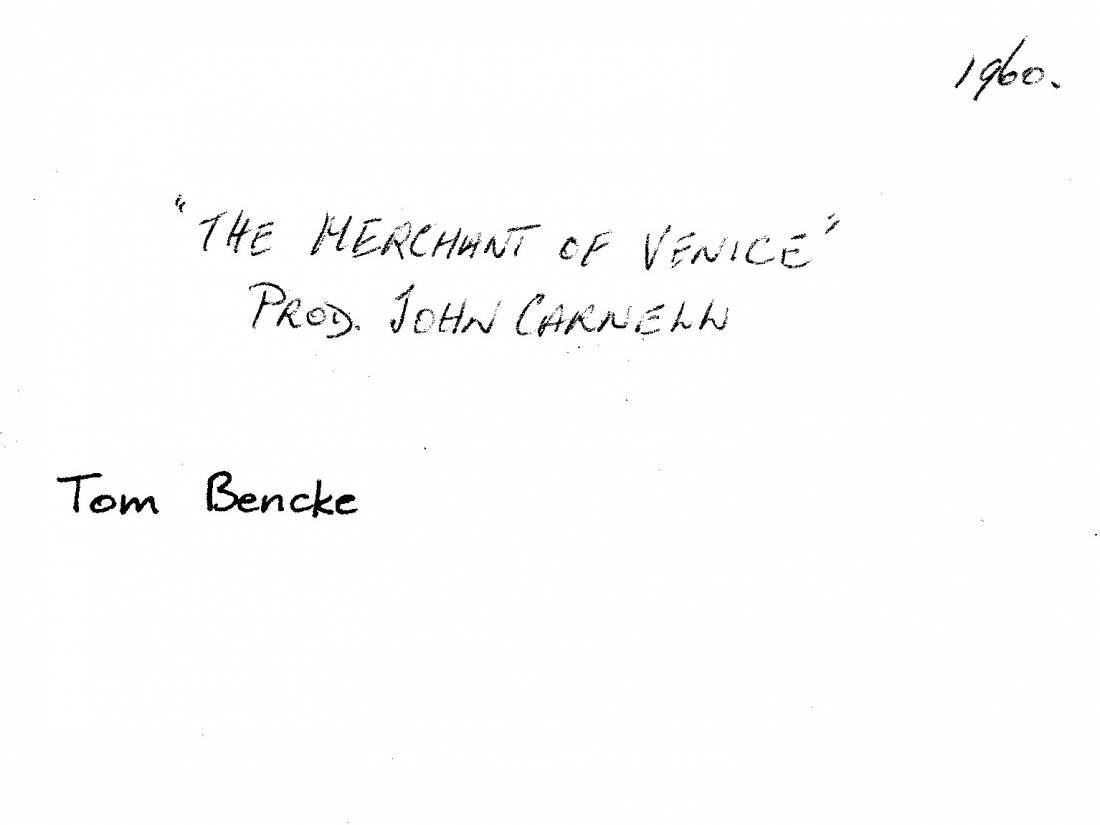 1960.
"THE MERCHANT OF VENICE"
PROD. JOHN CARNELL
Tom Bencke